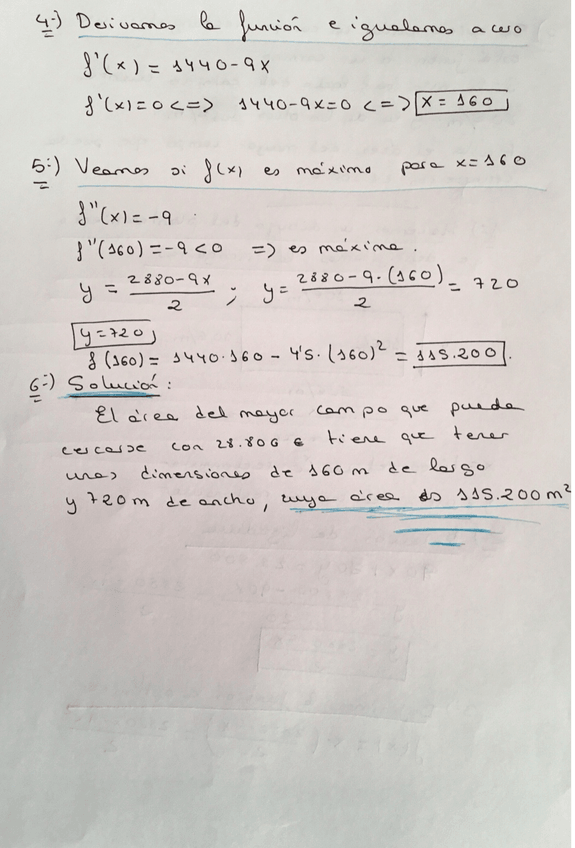 4º) Derivamos la función e igualamos a cero
f'(x) = 1440-9x
f'(x)=0 <=> 1440-9x=0 <=> x = 160
5º) Veamos si f(x) es máximo para x=160
f''(x)=-9
f''(160)=-9<0 => es máximo.
y = (2880-9x)/2 ; y = (2880-9·(160))/2 = 720
y=720
f(160) = 1440·160 - 4'5·(160)² = 115.200.
6º) Solución:
El área del mayor campo que puede
cercarse con 28.800 € tiene que tener
unas dimensiones de 160 m de largo
y 720 m de ancho, cuya área es 115.200 m²